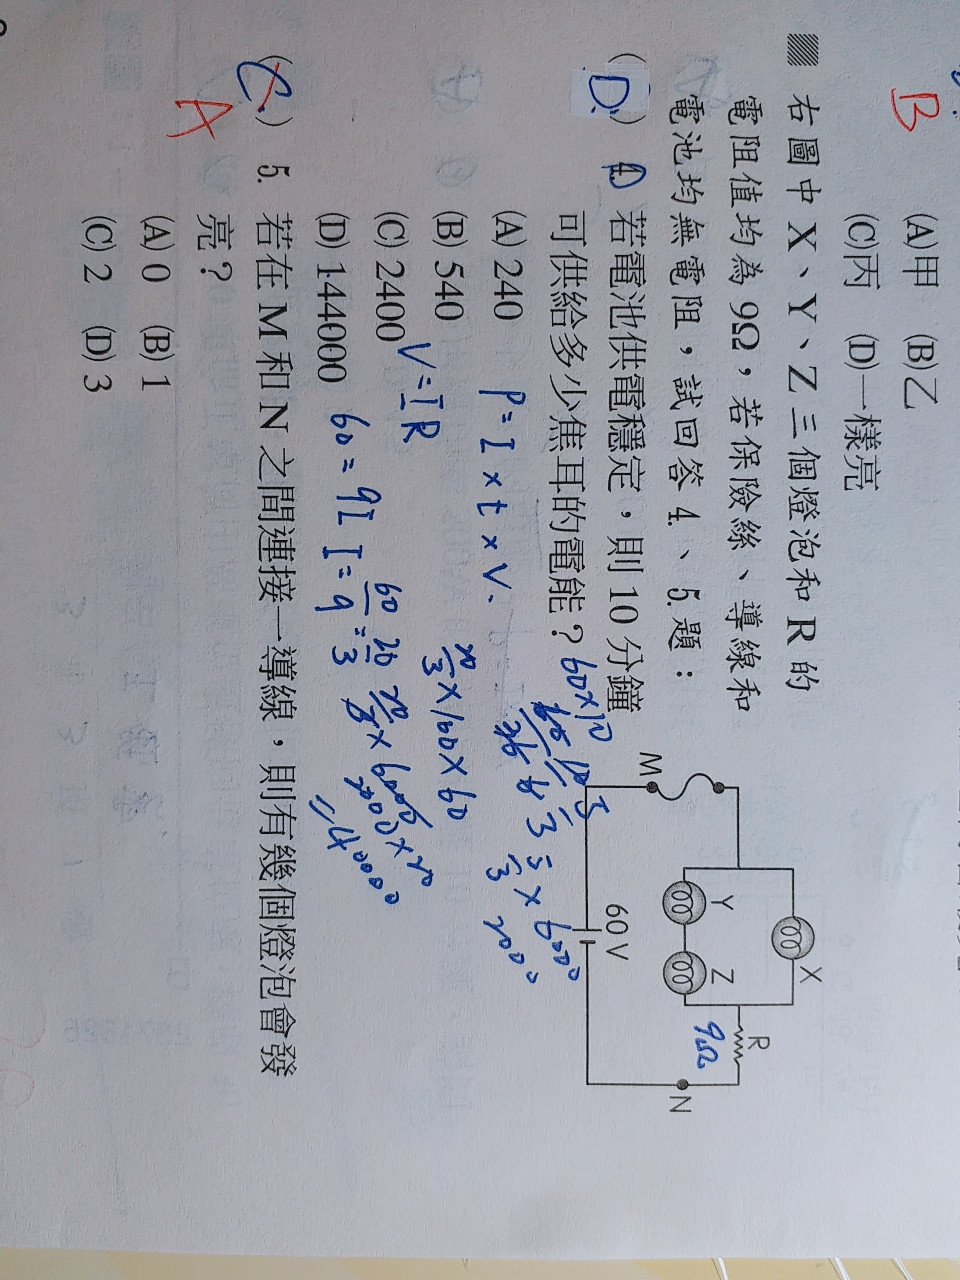 B
(A)甲 (B)乙
(C)丙 (D)一樣亮
右圖中 X、Y、Z 三個燈泡和 R 的
電阻值均為 9Ω，若保險絲、導線和
電池均無電阻，試回答 4.、5.題：
(D) 4. 若電池供電穩定，則 10 分鐘
可供給多少焦耳的電能？
(A) 240
(B) 540
(C) 2400
(D) 144000
(C) 5. 若在 M 和 N 之間連接一導線，則有幾個燈泡會發
亮？
A
(A) 0 (B) 1
(C) 2 (D) 3
X
Y Z
R
9Ω
M
60 V
N
60×10
P=I×t×V
V=IR
60=9I I=
60/9=20/3
20/3×60×60
5/3×6000
2000
20/3×6000
2000×20
=40000